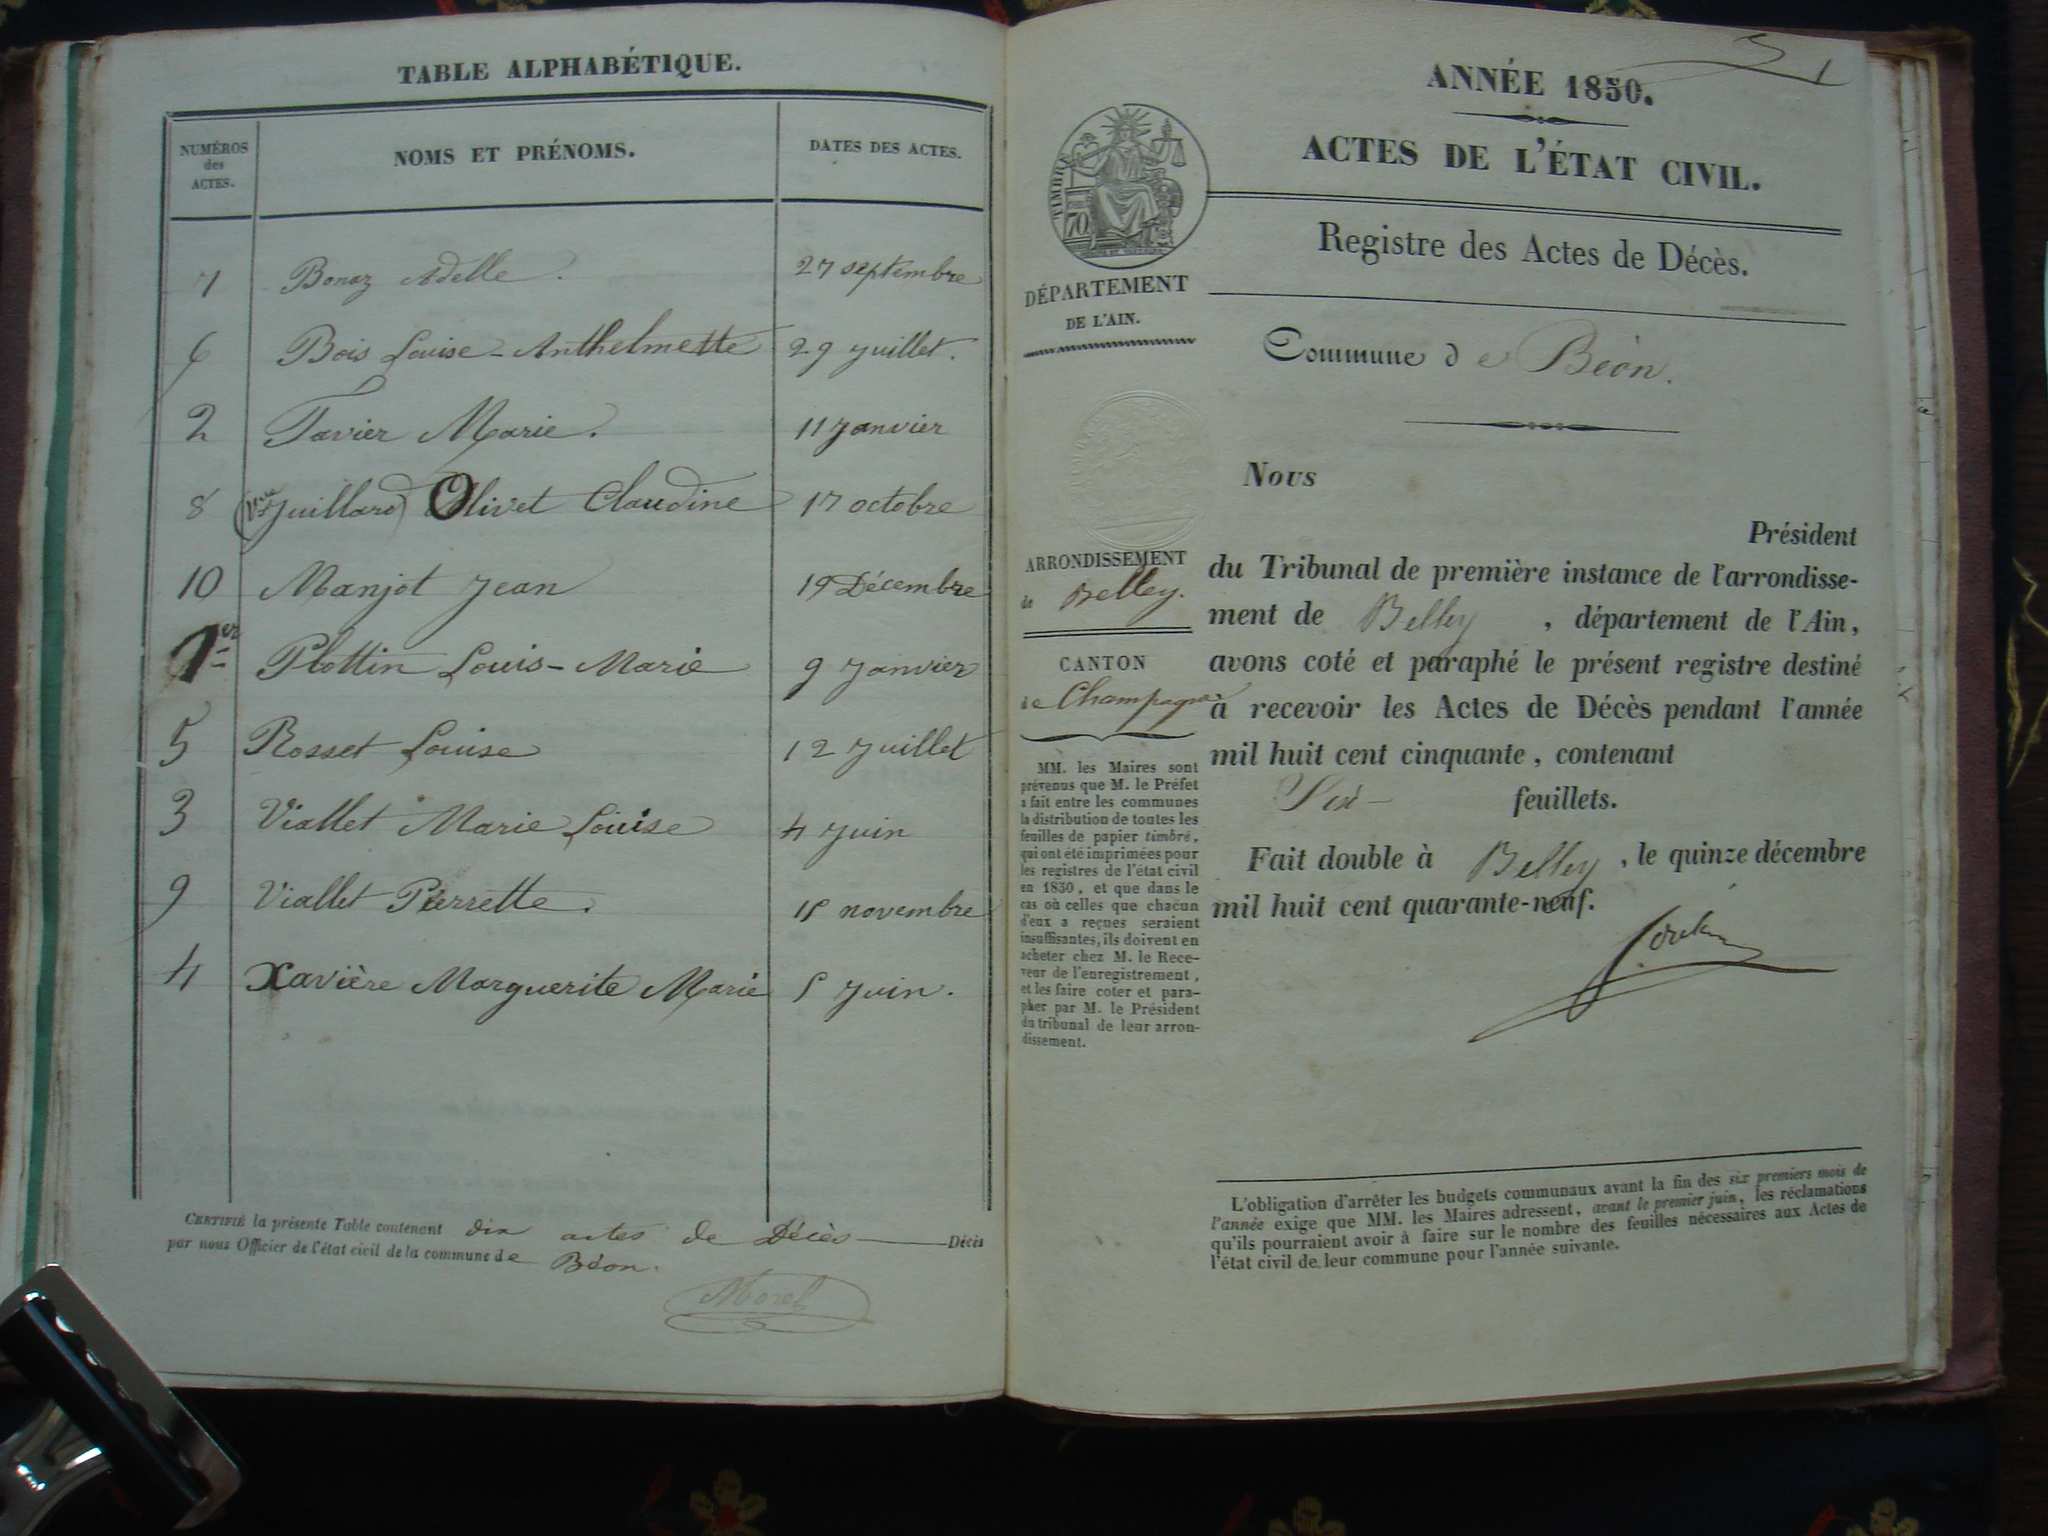 TABLE ALPHABÉTIQUE.
NUMÉROS des ACTES.
NOMS ET PRÉNOMS.
DATES DES ACTES.
7 Bonaz Adelle. 27 septembre
6 Bois Louise-Anthelmette 29 Juillet.
2 Tavier Marie. 11 Janvier
8 (Vve Juillard) Olivet Claudine 17 octobre
10 Manjot Jean 19 Décembre
1er Plottin Louis-Marie 9 Janvier
5 Rosset Louise 12 Juillet
3 Viallet Marie Louise 4 Juin
9 Viallet Pierrette. 15 novembre
4 Xavière Marguerite Marie 5 Juin.
CERTIFIÉ la présente Table contenant dix actes de Décès Décès
par nous Officier de l'état civil de la commune de Béon.
Morel
1
ANNÉE 1850.
ACTES DE L'ÉTAT CIVIL.
Registre des Actes de Décès.
TIMBRE
70
DÉPARTEMENT
DE L'AIN.
Commune de Béon.
ARRONDISSEMENT
de Belley.
CANTON
de Champagne
MM. les Maires sont
prévenus que M. le Préfet
a fait entre les communes
la distribution de toutes les
feuilles de papier timbré,
qui ont été imprimées pour
les registres de l'état civil
en 1850, et que dans le
cas où celles que chacun
d'eux a reçues seraient
insuffisantes, ils doivent en
acheter chez M. le Rece-
veur de l'enregistrement,
et les faire coter et para-
pher par M. le Président
du tribunal de leur arron-
dissement.
Nous
Président
du Tribunal de première instance de l'arrondisse-
ment de Belley, département de l'Ain,
avons coté et paraphé le présent registre destiné
à recevoir les Actes de Décès pendant l'année
mil huit cent cinquante, contenant
Six feuillets.
Fait double à Belley, le quinze décembre
mil huit cent quarante-neuf.
L'obligation d'arrêter les budgets communaux avant la fin des six premiers mois de
l'année exige que MM. les Maires adressent, avant le premier juin, les réclamations
qu'ils pourraient avoir à faire sur le nombre des feuilles nécessaires aux Actes de
l'état civil de leur commune pour l'année suivante.